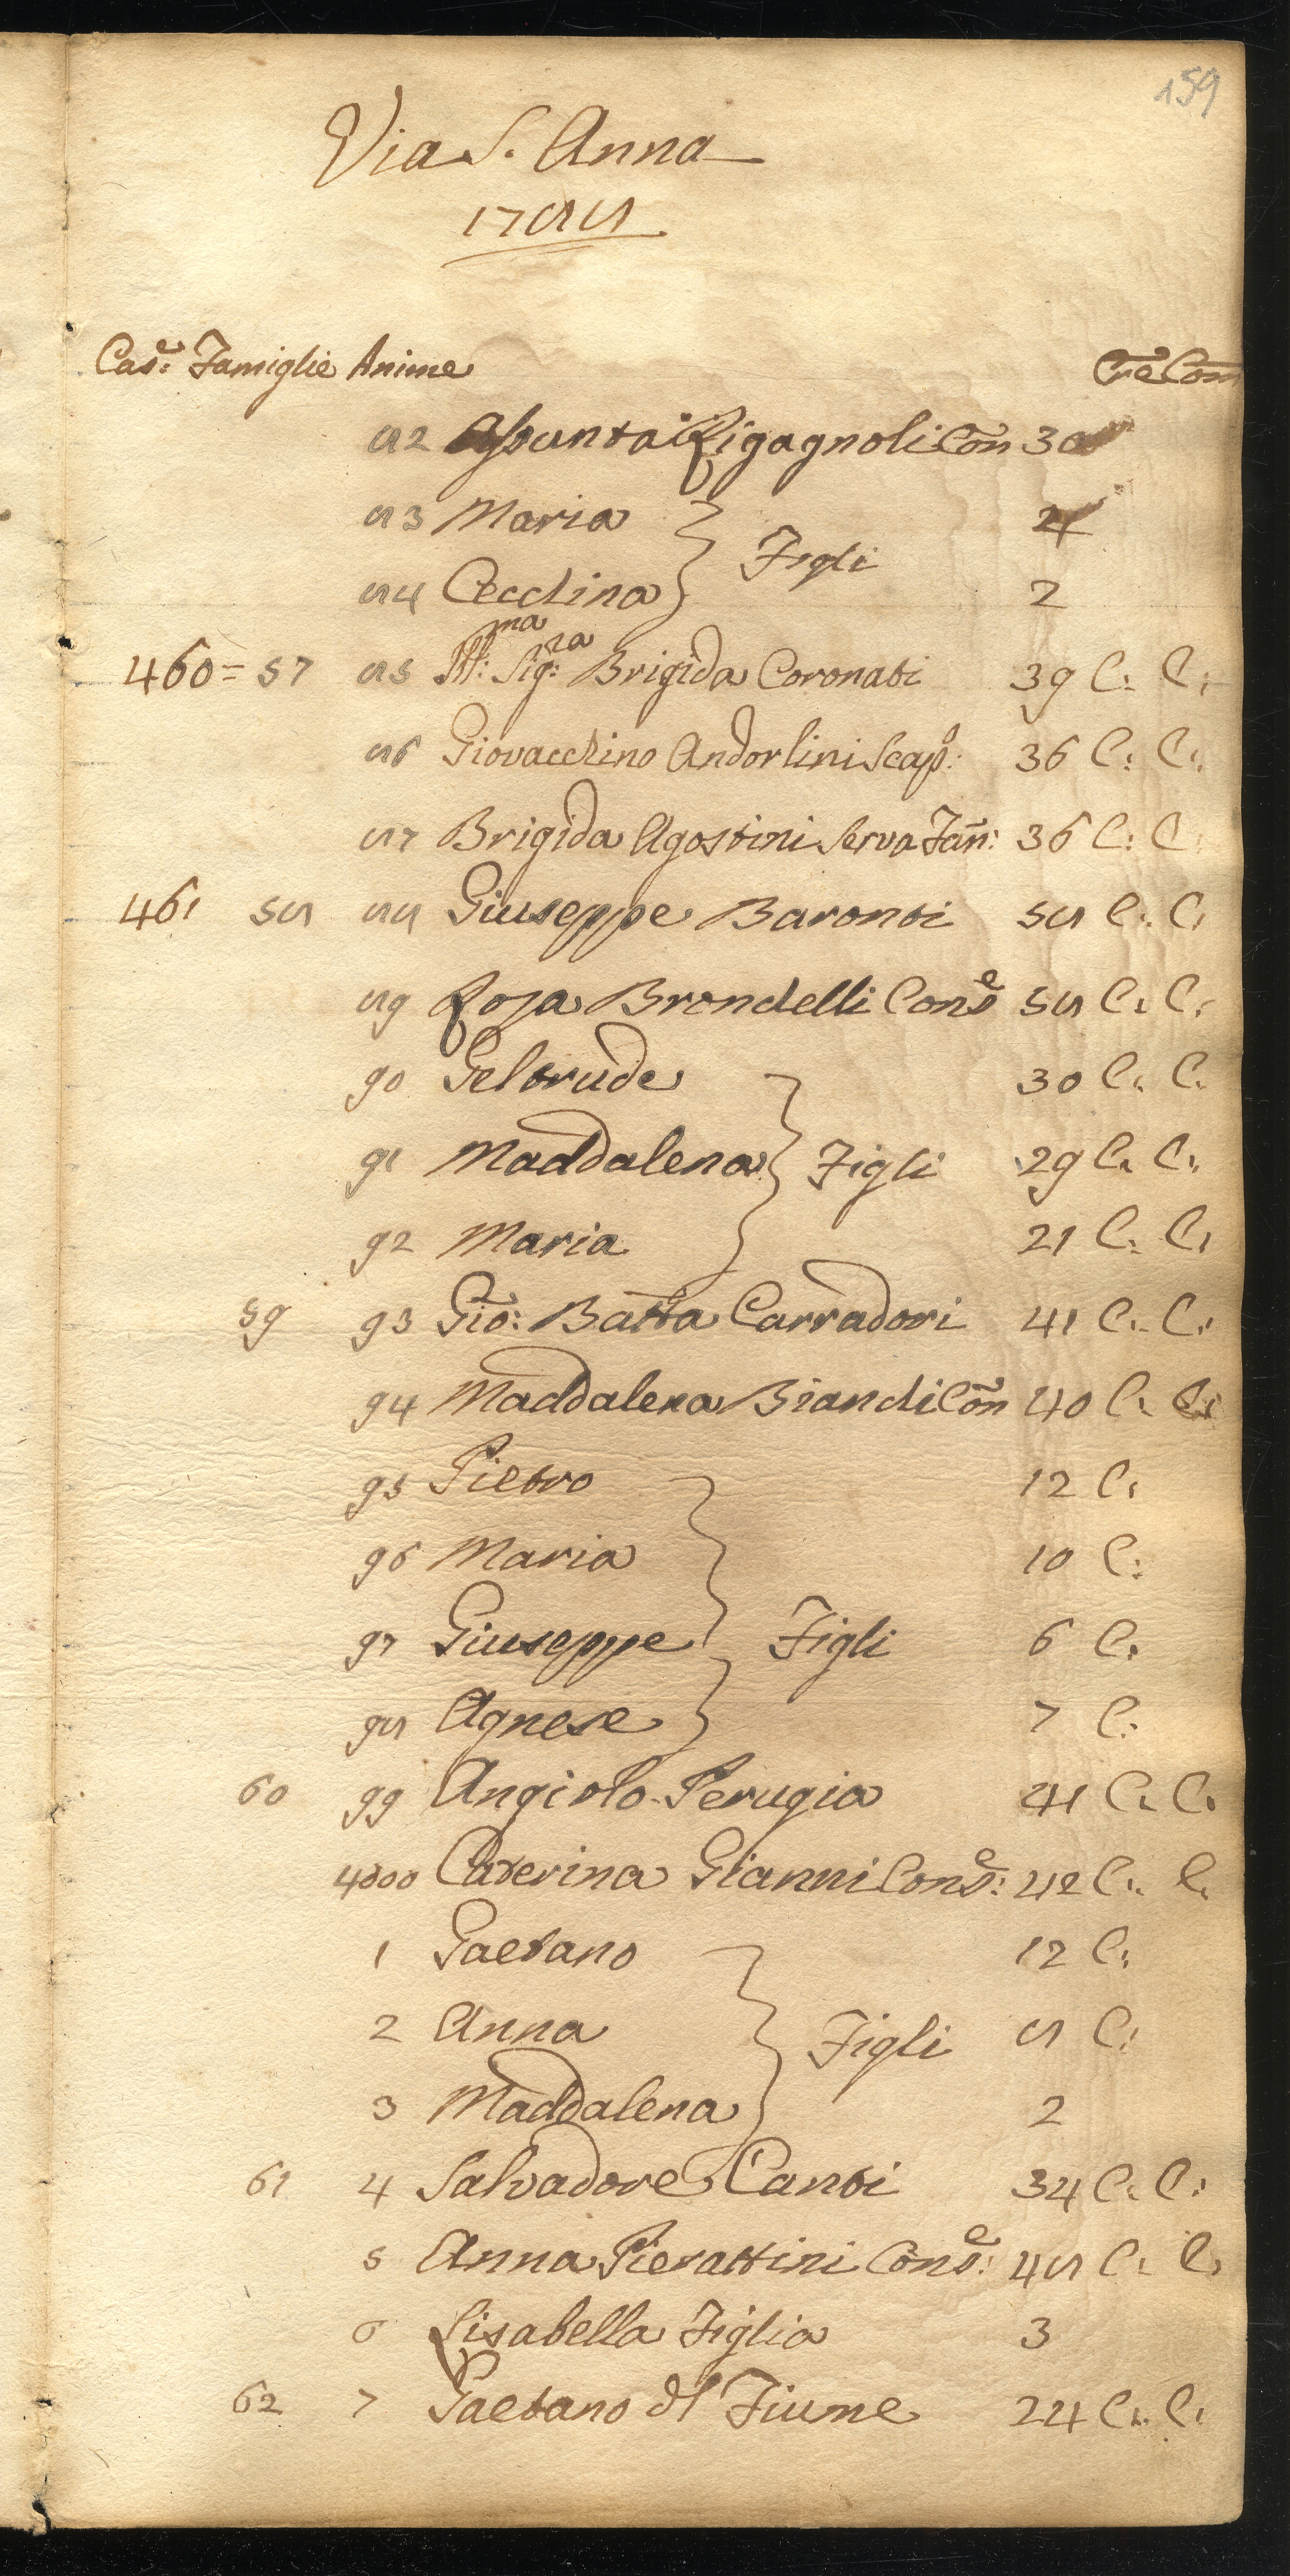 159
Via S. Anna
1788
Cas:e Famiglie Anime Cre Com
82 Assunta Rigagnoli Con 30
83 Maria 4
Figli
84 Cecchina 2
460 = 57 85 Ill:ma Sig:ra Brigida Coronati 39 C: C:
86 Giovacchino Andorlini Scap:o 36 C: C:
87 Brigida Agostini Serva Fan: 36 C: C:
461 58 88 Giuseppe Baronti 58 C: C:
89 Rosa Brondelli Cons:e 58 C: C:
90 Geltrude 30 C: C:
91 Maddalena Figli 29 C: C:
92 Maria 21 C: C:
59 93 Gio: Batta Carradori 41 C: C:
94 Maddalena Bianchi Con 40 C: C:
95 Pietro 12 C:
96 Maria 10 C:
97 Giuseppe Figli 6 C:
98 Agnese 7 C:
60 99 Angiolo Perugia 41 C: C:
4000 Caterina Gianni Cons:e 42 C: C:
1 Gaetano 12 C:
2 Anna Figli 8 C:
3 Maddalena 2
61 4 Salvadore Canti 34 C: C:
5 Anna Pierattini Cons:e 48 C: C:
6 Lisabella Figlia 3
62 7 Gaetano dl Fiume 24 C: C: